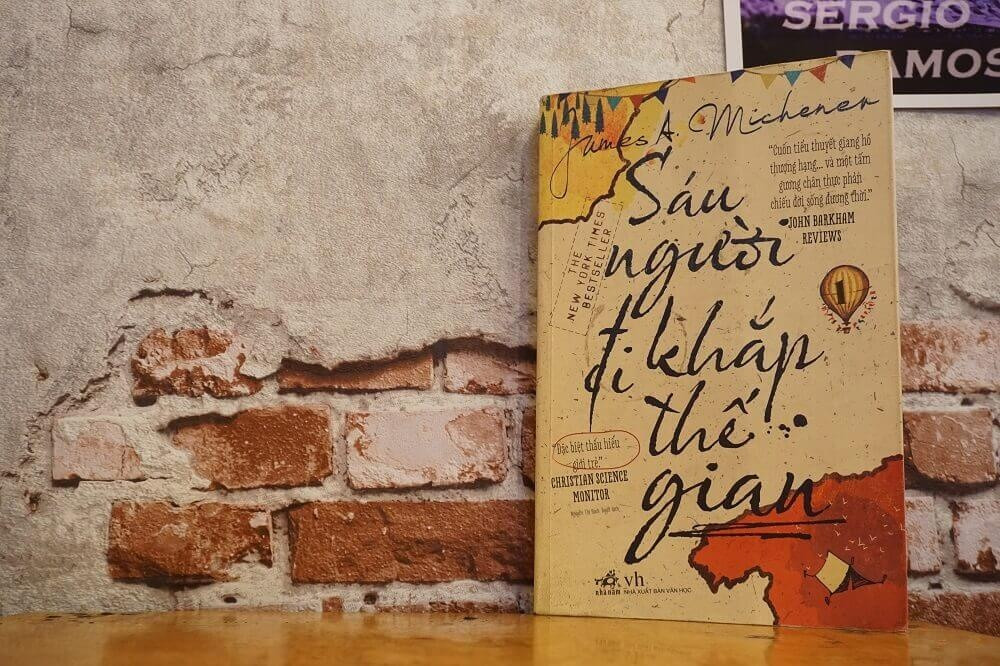 SERGIO
RAMOS
James A. Michener
"Cuốn tiểu thuyết giang hồ
thượng hạng... và một tấm
gương chân thực phản
chiếu đời sống đương thời."
JOHN BARKHAM
REVIEWS
Sáu
người
đi khắp
thế
gian
THE
NEW YORK TIMES
BESTSELLER
"Đặc biệt thấu hiểu
giới trẻ."
CHRISTIAN SCIENCE
MONITOR
Nguyễn Thị Bạch Tuyết dịch
nhã nam
vh
NHÀ XUẤT BẢN VĂN HỌC